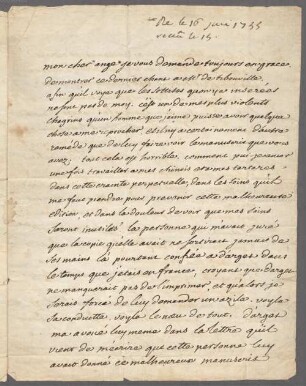 le 16 juin 1755
mon cher ange je vous demande toujours en grace
de montrer ce dernier chant a mr de thibouville
afin qu'il voye que les sottises qu'on y a inserées
ne sont pas de moy. c'est un de mes plus violents
chagrins qu'un homme que j'aime puisse avoir quelque
chose a me reprocher, et il n'y a certainement d'autre
remede que de luy faire voir le manuscrit que vous
avez. tout cela est horrible. comment puis je songer
une fois travailler a mes chinois et a mes tartares
dans cette crainte perpetuelle, dans les soins qu'il
me faut prendre pour prevenir cette malheureuse
edition, et dans la douleur de voir que mes soins
seront inutiles. la personne qui m'avait juré
que la copie qu'elle avait ne sortirait jamais de
ses mains l'a pourtant confiée a darget dans
le temps que j'etais en france, croyant que darget
ne manquerait pas de l'imprimer, et qu'alors je
serais forcé de luy demander un azile. voyla
sa conduitte voyla le neu de tout. darget
m'a avoué luy meme dans la lettre qu'il
vient de m'ecrire que cette personne luy
avait donné ce malheureux manuscrit